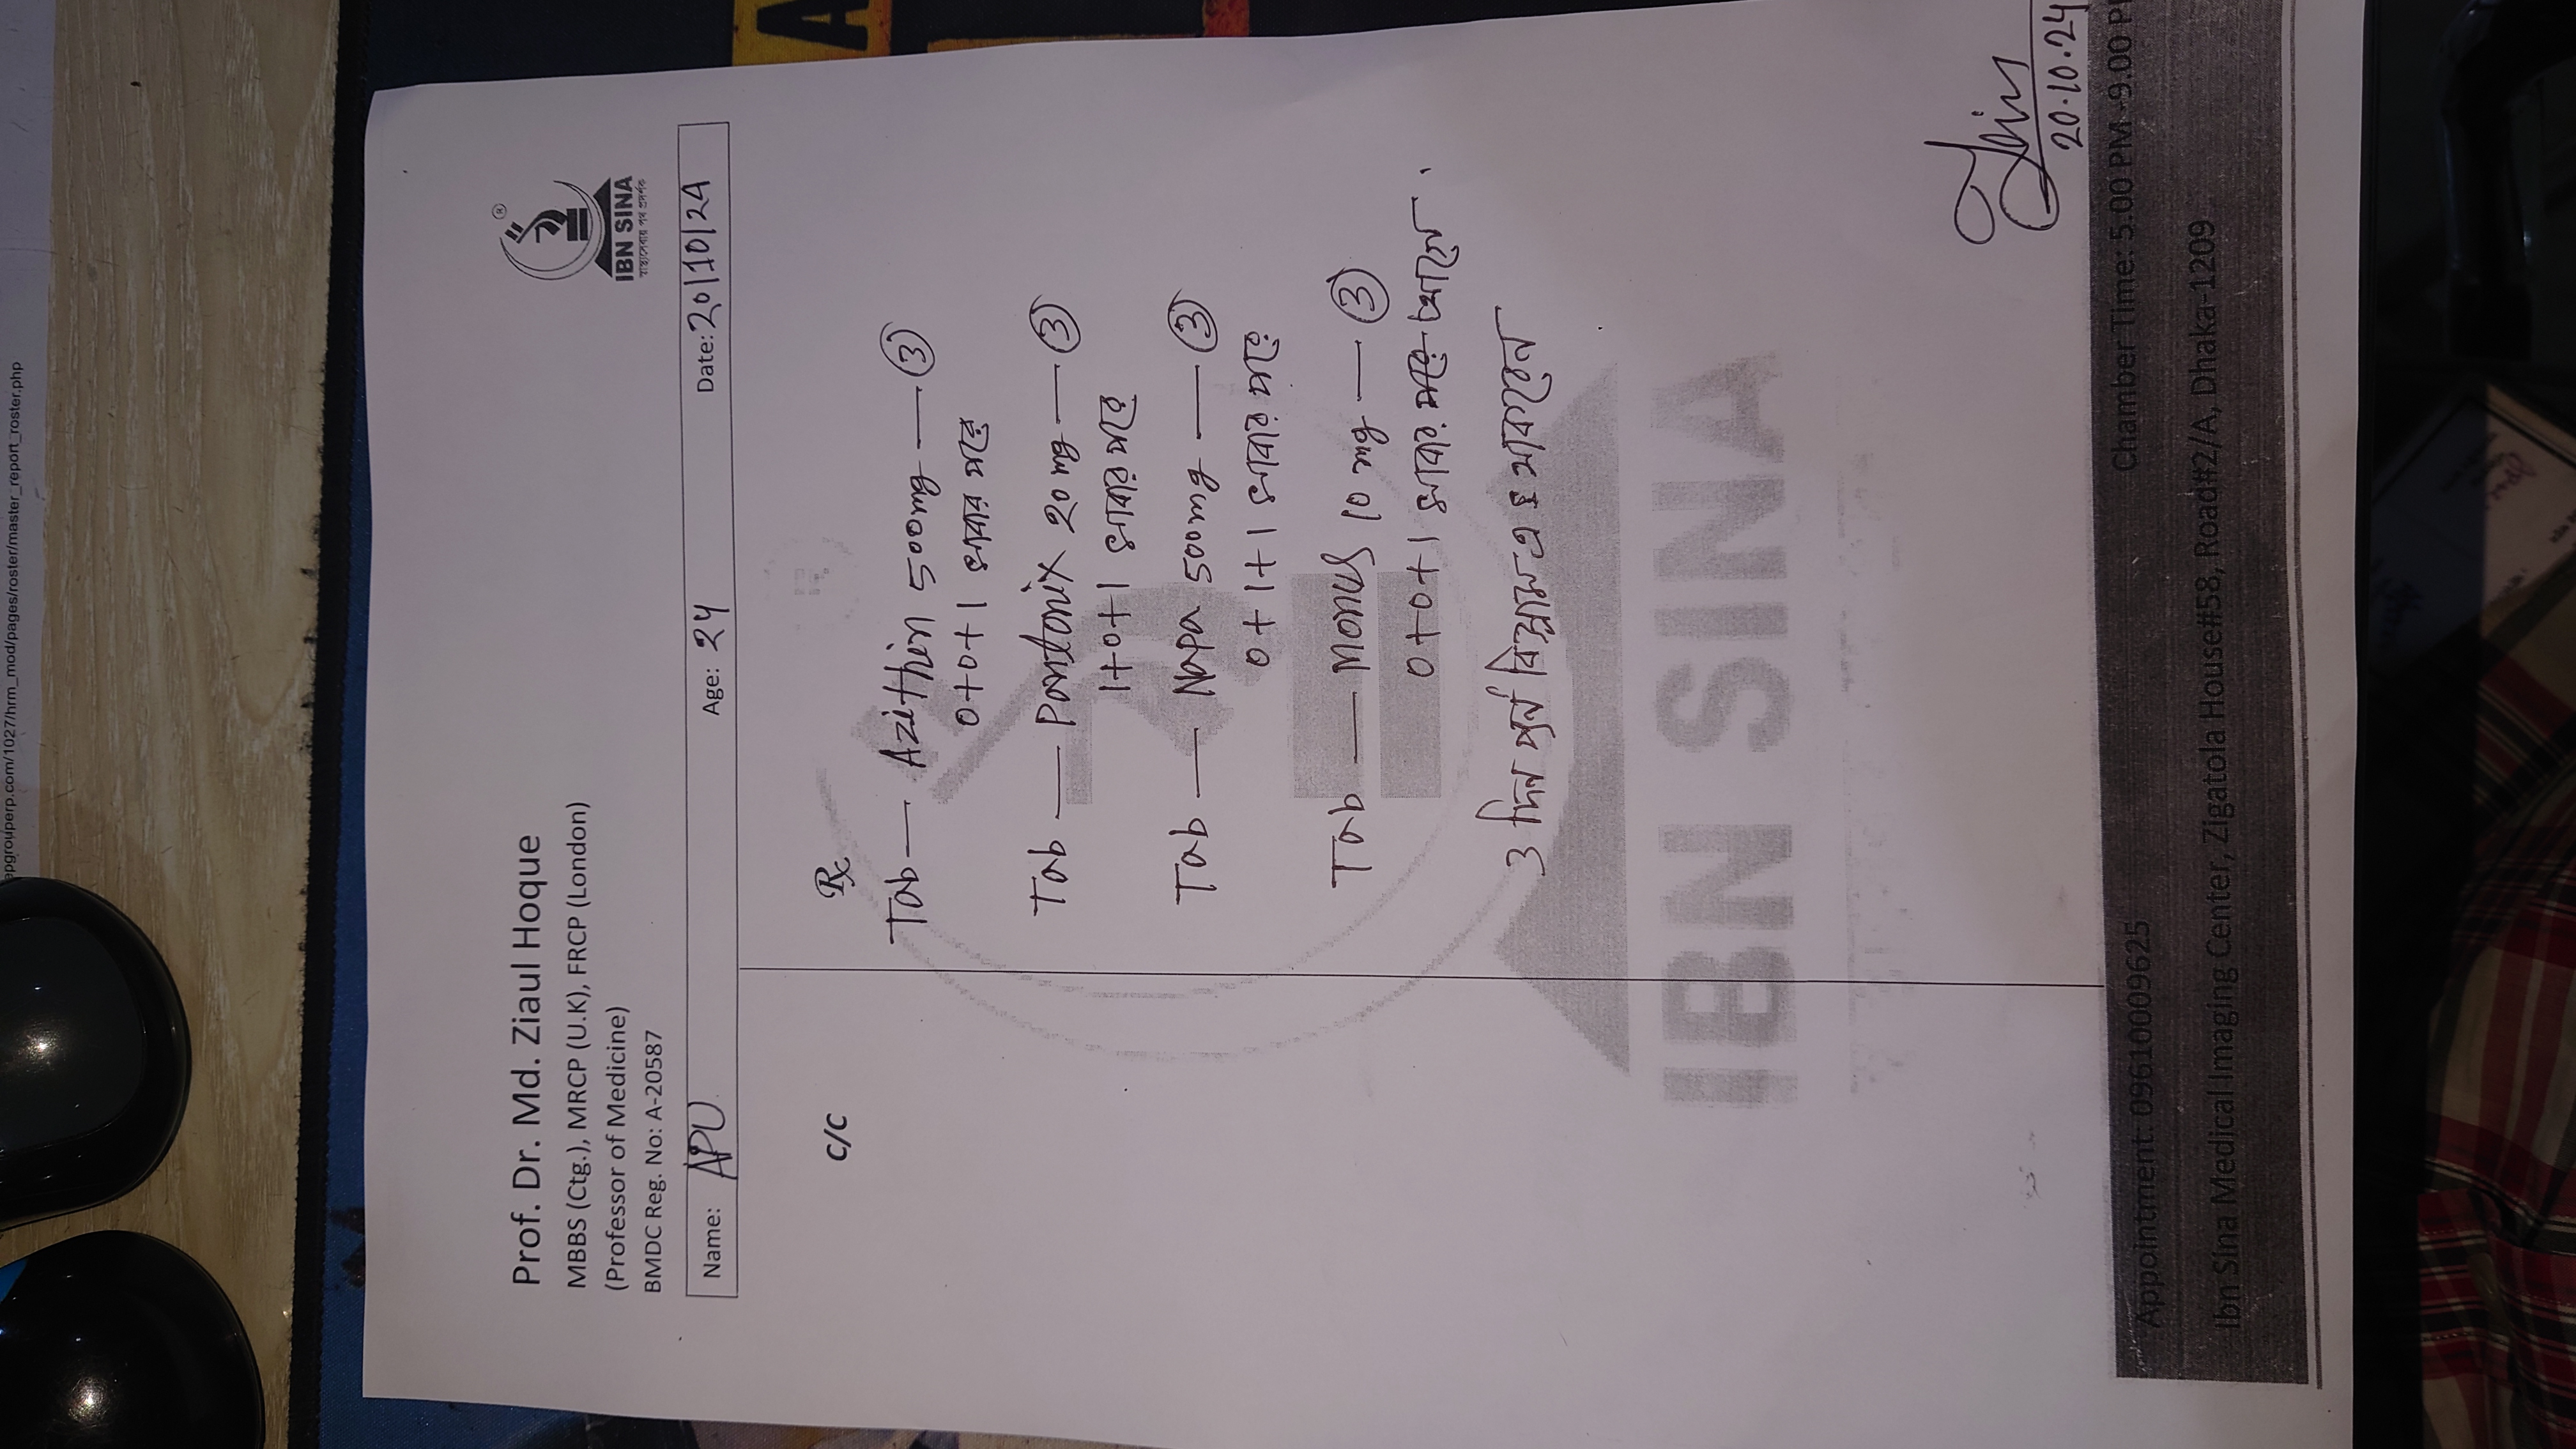 epgrouperp.com/1027/hrm_mod/pages/roster/master_report_roster.php
A
Prof. Dr. Md. Ziaul Hoque
MBBS (Ctg.), MRCP (U.K), FRCP (London)
(Professor of Medicine)
BMDC Reg. No: A-20587
®
IBN SINA
Name: APU Age: 24 Date: 20/10/24
C/C
Rx
Tab — Azithin 500mg — 3
0+0+1 খাবার পরে
Tab — Pantonix 20 mg — 3
1+0+1 খাবার পরে
Tab — Napa 500mg — 3
0+1+1 খাবার পরে
Tab — Monus 10 mg — 3
0+0+1 খাবার পরে খাবেন.
3 দিন পূর্ণ বিশ্রামে থাকবেন
IBN SINA
20.10.24
Appointment: 09610009625 Chamber Time: 5.00 PM -9.00
Ibn Sina Medical Imaging Center, Zigatola House#58, Road#2/A, Dhaka-1209